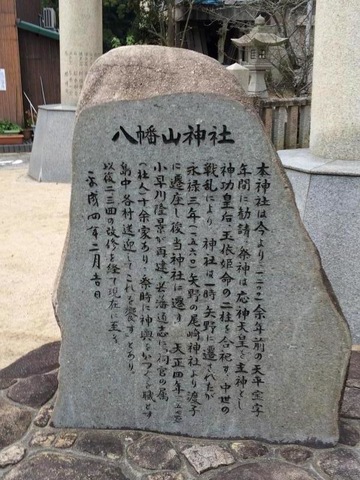 八幡山神社
本神社は今より(一二〇〇)余年前の天平宝字
年間に勧請し祭神は応神天皇を主神とし
神功皇后、玉依姫命の二柱を合祀す、中世の
戦乱により神社は一時矢野に遷されたが
永禄三年(一五六〇)矢野の尾崎神社より渡子
に遷座し後当神社に遷り、天正四年
小早川隆景が再建、芸藩通志に、祠官の属
(社人)十余家あり、祭時に神輿をかつぐを職とす
島中各村送迎してこれを饗す、とあり、
以後二三回の改修を経て現在に至る
平成四年二月吉日